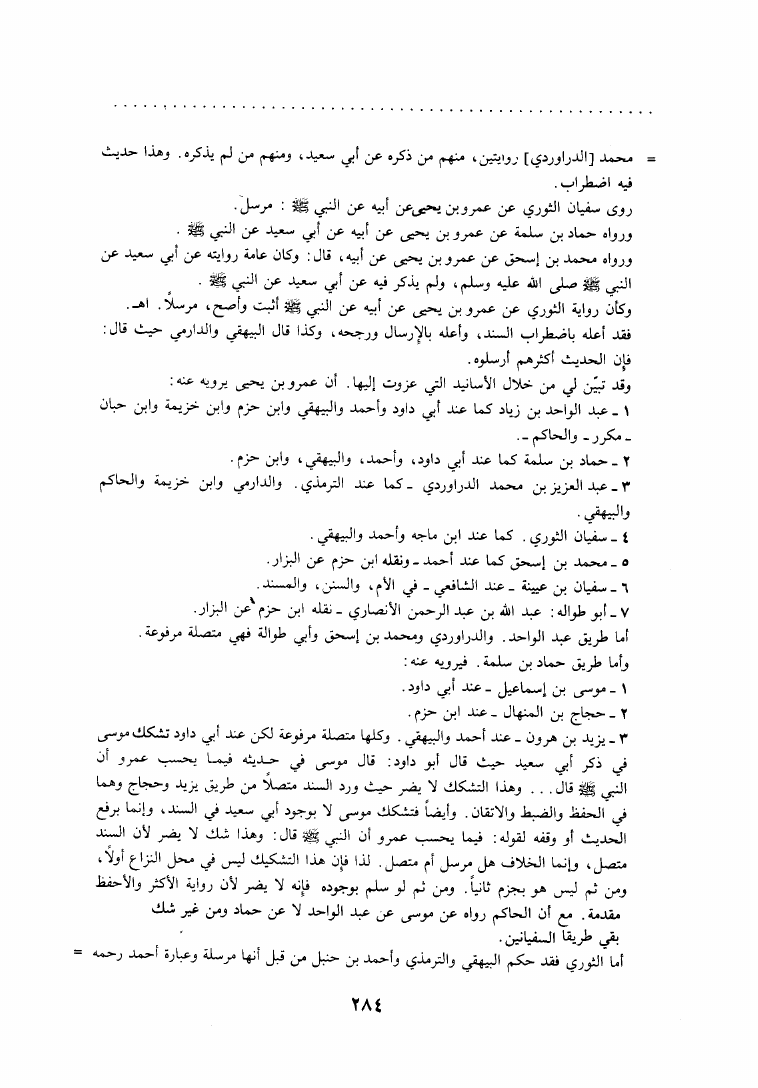 = محمد [الدراوردي] روايتين، منهم من ذكره عن أبي سعيد، ومنهم من لم يذكره. وهذا حديث
فيه اضطراب.
روى سفيان الثوري عن عمرو بن يحيى عن أبيه عن النبي ﷺ : مرسل.
ورواه حماد بن سلمة عن عمرو بن يحيى عن أبيه عن أبي سعيد عن النبي ﷺ .
ورواه محمد بن إسحق عن عمرو بن يحيى عن أبيه، قال: وكان عامة روايته عن أبي سعيد عن
النبي ﷺ صلى الله عليه وسلم، ولم يذكر فيه عن أبي سعيد عن النبي ﷺ .
وكأن رواية الثوري عن عمرو بن يحيى عن أبيه عن النبي ﷺ أثبت وأصح، مرسلًا. اهـ.
فقد أعله باضطراب السند، وأعله بالإرسال ورجحه، وكذا قال البيهقي والدارمي حيث قال:
فإن الحديث أكثرهم أرسلوه.
وقد تبيّن لي من خلال الأسانيد التي عزوت إليها. أن عمرو بن يحيى يرويه عنه:
١ ـ عبد الواحد بن زياد كما عند أبي داود وأحمد والبيهقي وابن حزم وابن خزيمة وابن حبان
ـ مكرر ـ والحاكم ـ.
٢ ـ حماد بن سلمة كما عند أبي داود، وأحمد، والبيهقي، وابن حزم.
٣ ـ عبد العزيز بن محمد الدراوردي ـ كما عند الترمذي. والدارمي وابن خزيمة والحاكم
والبيهقي.
٤ ـ سفيان الثوري. كما عند ابن ماجه وأحمد والبيهقي.
٥ ـ محمد بن إسحق كما عند أحمد ـ ونقله ابن حزم عن البزار.
٦ ـ سفيان بن عيينة ـ عند الشافعي ـ في الأم، والسنن، والمسند.
٧ ـ أبو طواله: عبد الله بن عبد الرحمن الأنصاري ـ نقله ابن حزم عن البزار.
أما طريق عبد الواحد. والدراوردي ومحمد بن إسحق وأبي طوالة فهي متصلة مرفوعة.
وأما طريق حماد بن سلمة. فيرويه عنه:
١ ـ موسى بن إسماعيل ـ عند أبي داود.
٢ ـ حجاج بن المنهال ـ عند ابن حزم.
٣ ـ يزيد بن هرون ـ عند أحمد والبيهقي. وكلها متصلة مرفوعة لكن عند أبي داود تشكك موسى
في ذكر أبي سعيد حيث قال أبو داود: قال موسى في حديثه فيما يحسب عمرو أن
النبي ﷺ قال... وهذا التشكك لا يضر حيث ورد السند متصلًا من طريق يزيد وحجاج وهما
في الحفظ والضبط والاتقان. وأيضاً فتشكك موسى لا بوجود أبي سعيد في السند، وإنما برفع
الحديث أو وقفه لقوله: فيما يحسب عمرو أن النبي ﷺ قال: وهذا شك لا يضر لأن السند
متصل، وإنما الخلاف هل مرسل أم متصل. لذا فإن هذا التشكيك ليس في محل النزاع أولًا،
ومن ثم ليس هو بجزم ثانياً. ومن ثم لو سلم بوجوده فإنه لا يضر لأن رواية الأكثر والأحفظ
مقدمة. مع أن الحاكم رواه عن موسى عن عبد الواحد لا عن حماد ومن غير شك
بقي طريقا السفيانين.
أما الثوري فقد حكم البيهقي والترمذي وأحمد بن حنبل من قبل أنها مرسلة وعبارة أحمد رحمه =
٢٨٤